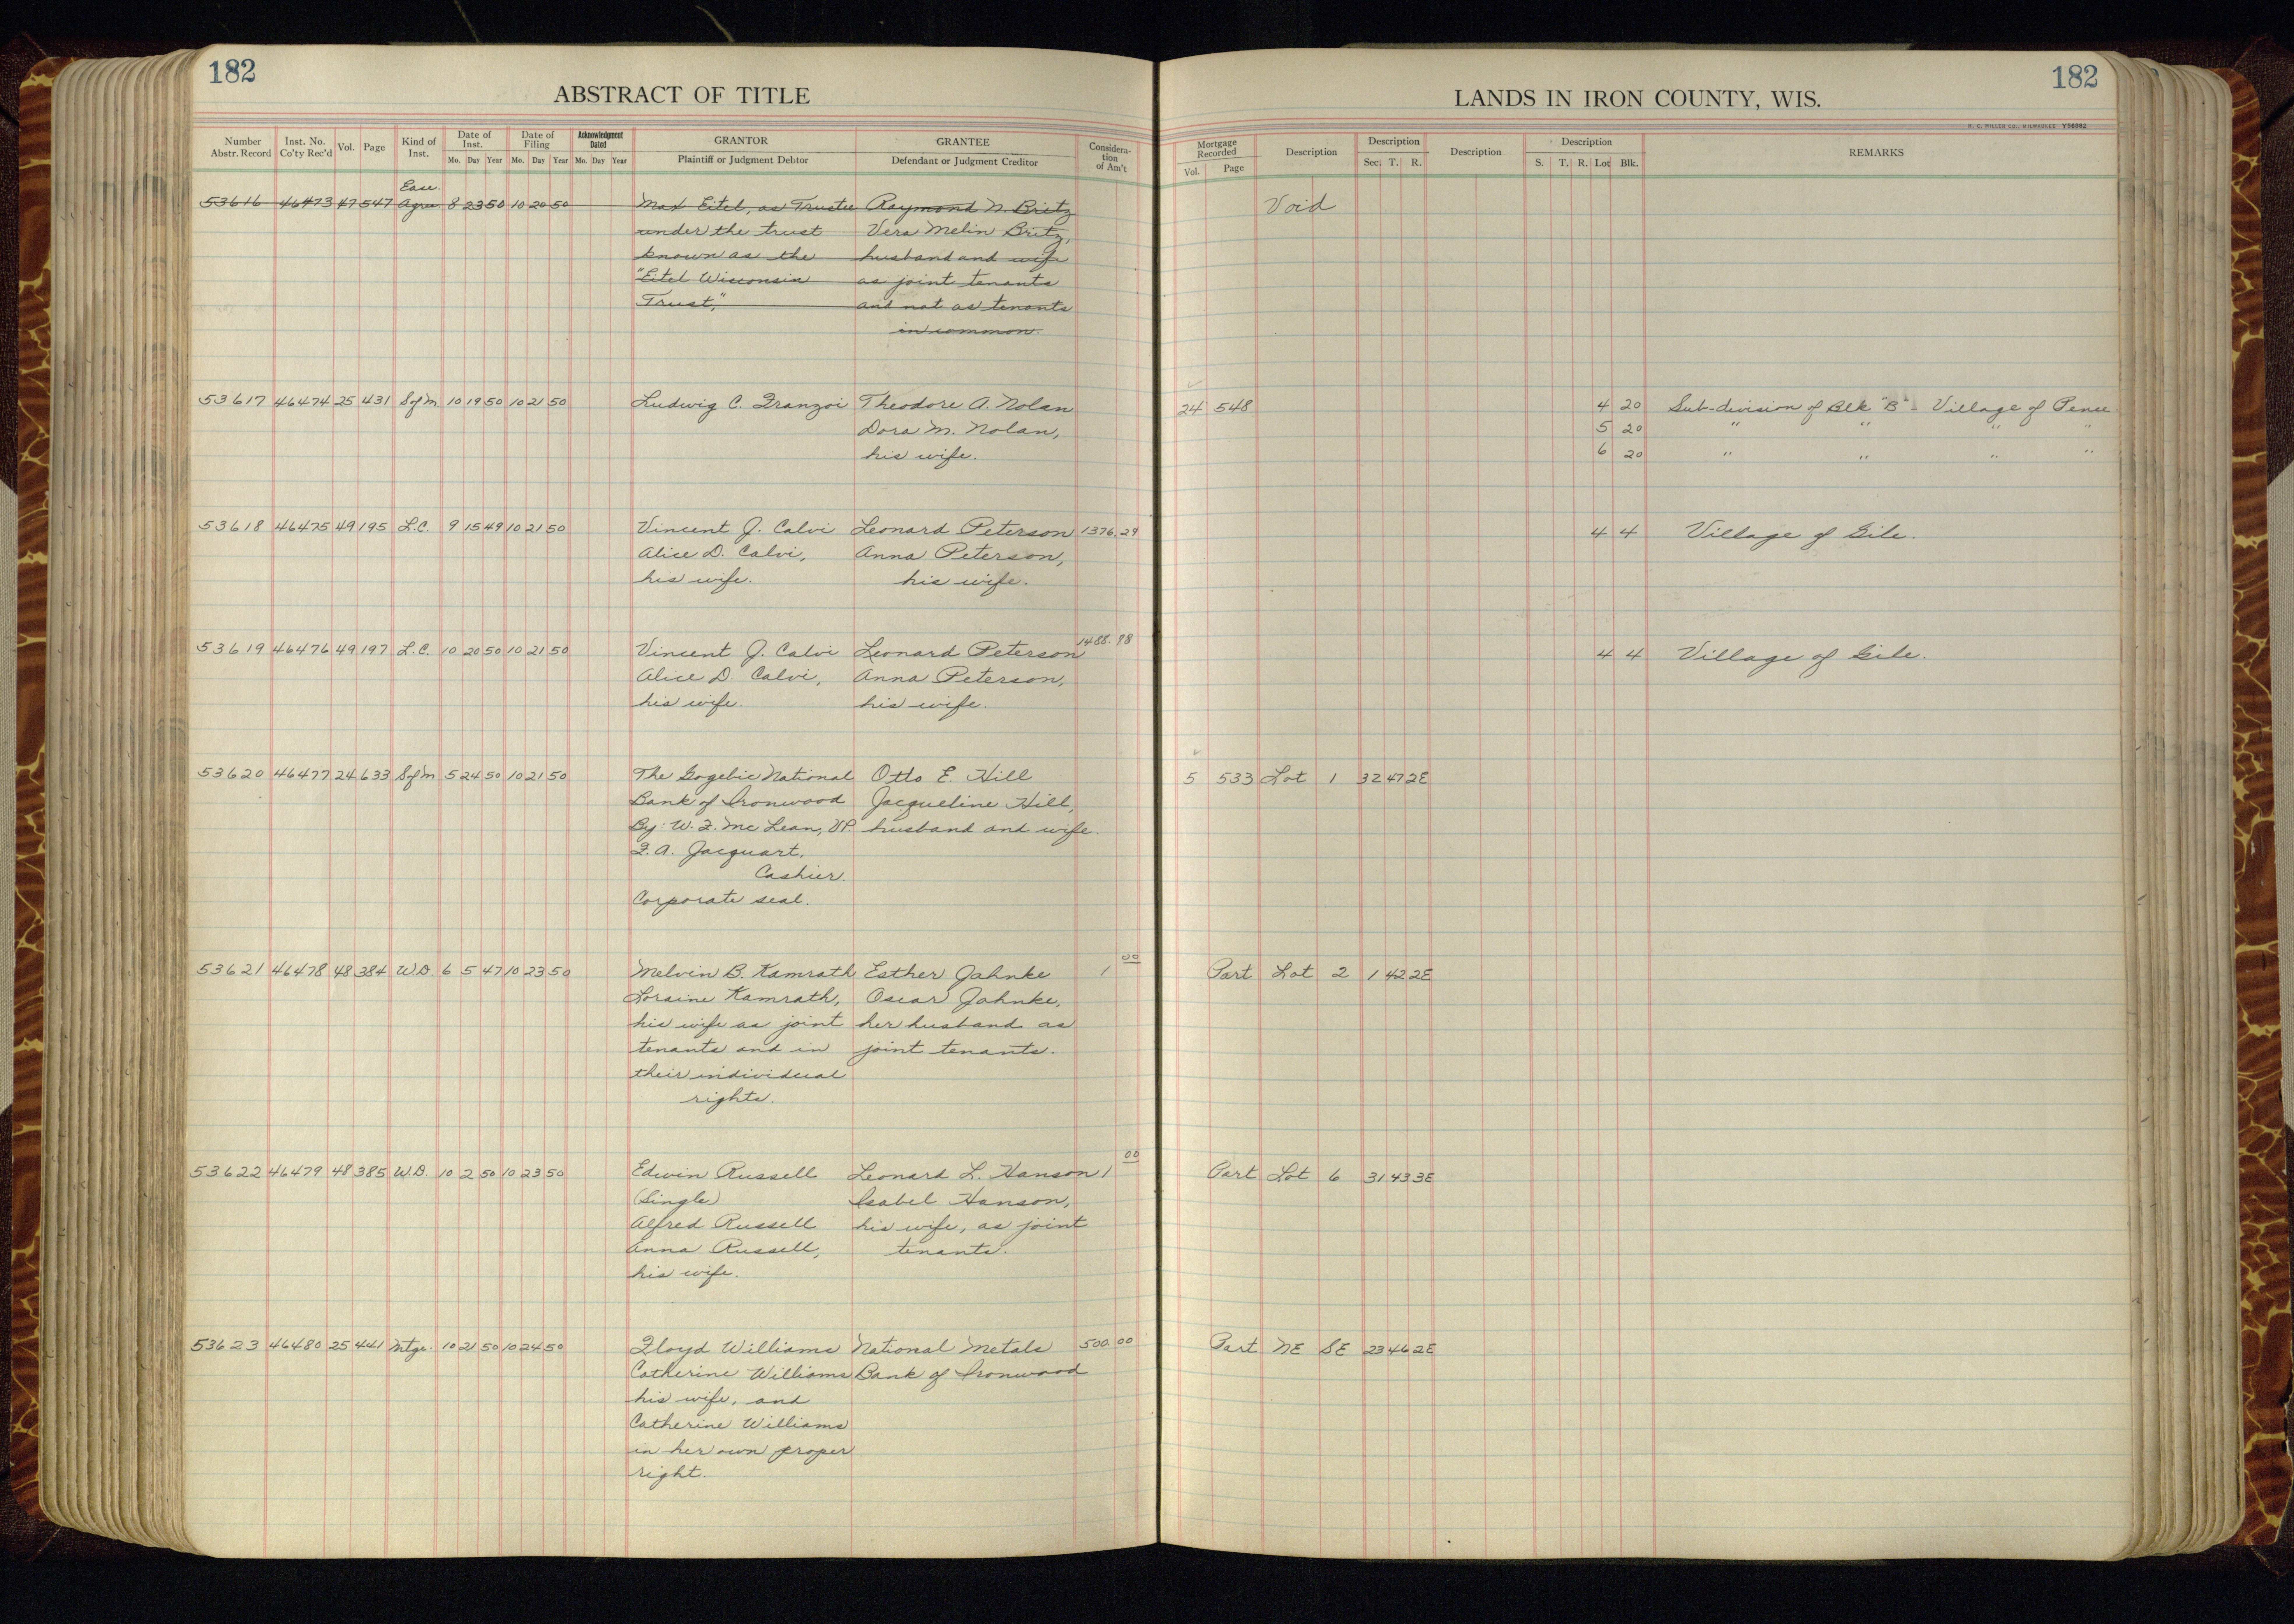 182
ABSTRACT OF TITLE
Number Abstr. Record Inst. No. Co'ty Rec'd Vol. Page Kind of Inst. Date of Inst. Mo. Day Year Date of Filing Mo. Day Year Acknowledgment Dated Mo. Day Year GRANTOR Plaintiff or Judgment Debtor GRANTEE Defendant or Judgment Creditor Considera-tion of Am't
Ease.
53616 46473 47 547 Agree 8 23 50 10 20 50 Max Eitel, as Trustee Raymond N. Britz
under the trust Vera Melin Britz,
known as the husband and wife
"Eitel Wisconsin as joint tenants
Trust," and not as tenants
in common.
53617 46474 25 431 S of M 10 19 50 10 21 50 Ludwig C. Franzoi Theodore A. Nolan
Dora M. Nolan,
his wife.
53618 46475 49 195 L.C. 9 15 49 10 21 50 Vincent J. Calvi Leonard Peterson 1376.29
Alice D. Calvi, Anna Peterson,
his wife. his wife.
53619 46476 49 197 L.C. 10 20 50 10 21 50 Vincent J. Calvi Leonard Peterson 1488.98
Alice D. Calvi, Anna Peterson,
his wife. his wife.
53620 46477 24 633 S of M 5 24 50 10 21 50 The Gogebic National Otto E. Hill
Bank of Ironwood Jacqueline Hill,
By: W. F. McLean, VP. husband and wife.
F. A. Jacquart,
Cashier.
Corporate seal.
53621 46478 48 384 W.D. 6 5 47 10 23 50 Melvin B. Kamrath Esther Jahnke 1 00
Loraine Kamrath, Oscar Jahnke,
his wife as joint her husband as
tenants and in joint tenants.
their individual
rights.
53622 46479 48 385 W.D. 10 2 50 10 23 50 Edwin Russell Leonard L. Hanson 1 00
(Single) Isabel Hanson,
Alfred Russell his wife, as joint
Anna Russell, tenants.
his wife.
53623 46480 25 441 Mtge. 10 21 50 10 24 50 Floyd Williams National Metals 500.00
Catherine Williams Bank of Ironwood
his wife, and
Catherine Williams
in her own proper
right.
182
LANDS IN IRON COUNTY, WIS.
H. C. MILLER CO., MILWAUKEE Y56082
Mortgage Recorded Vol. Page Description Description Sec. T. R. Description Description S. T. R. Lot Blk. REMARKS
Void
24 548 4 20 Sub-division of Blk "B" Village of Pence
5 20 " " " "
6 20 " " " "
4 4 Village of Gile.
4 4 Village of Gile.
5 533 Lot 1 32 47 2E
Part Lot 2 1 42 2E
Part Lot 6 31 43 3E
Part NE SE 23 46 2E